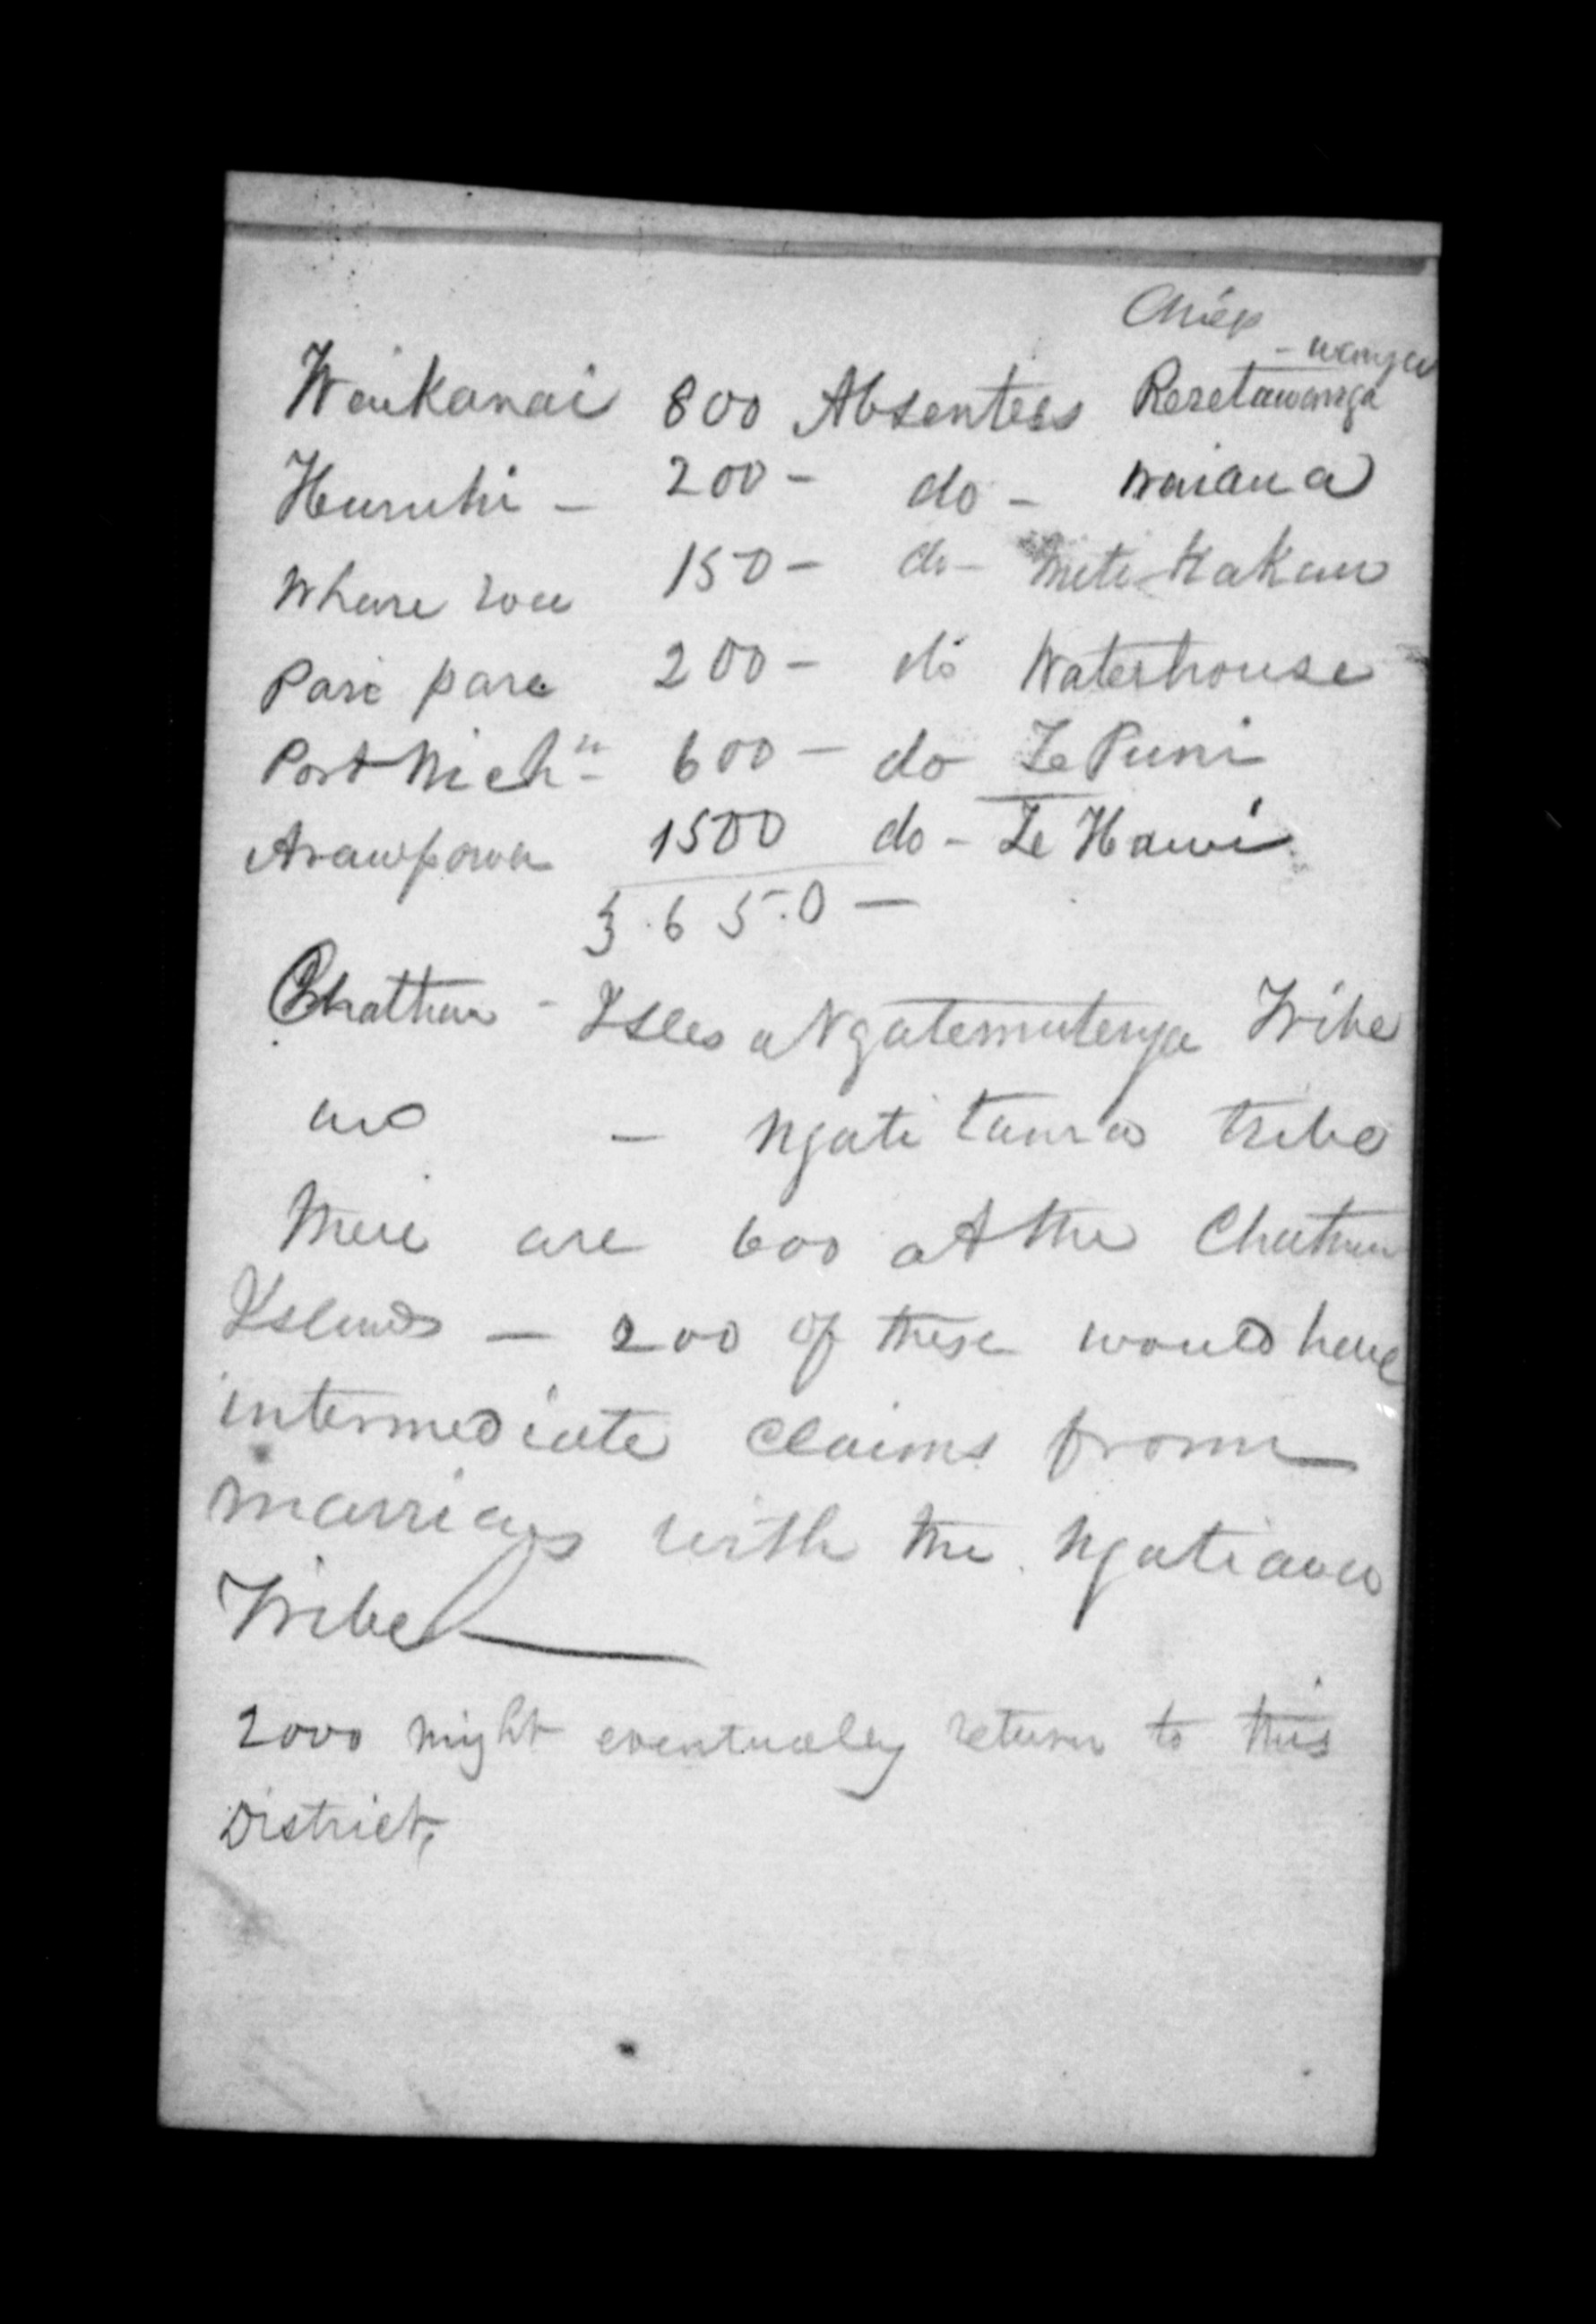 Chiefs
- wanga
Waikanai 800 Absentees Reretawanga
Huruhi - 200 - do - Waiaua
Whare roa 150 - do - Mete Kakau
Pari para 200 - do Waterhouse
Port Nich" - 600 - do Te Puni
Arawpawa 1500 do - Te Hawi
3.650 -
Chatham - Isles Ngatemutenga Tribe
and - Ngati tama tribe
There are 600 at the Chatham
Islands - 200 of these would have
intermediate claims from
marriages with the Ngatiawa
Tribe
2000 might eventually return to this
District,